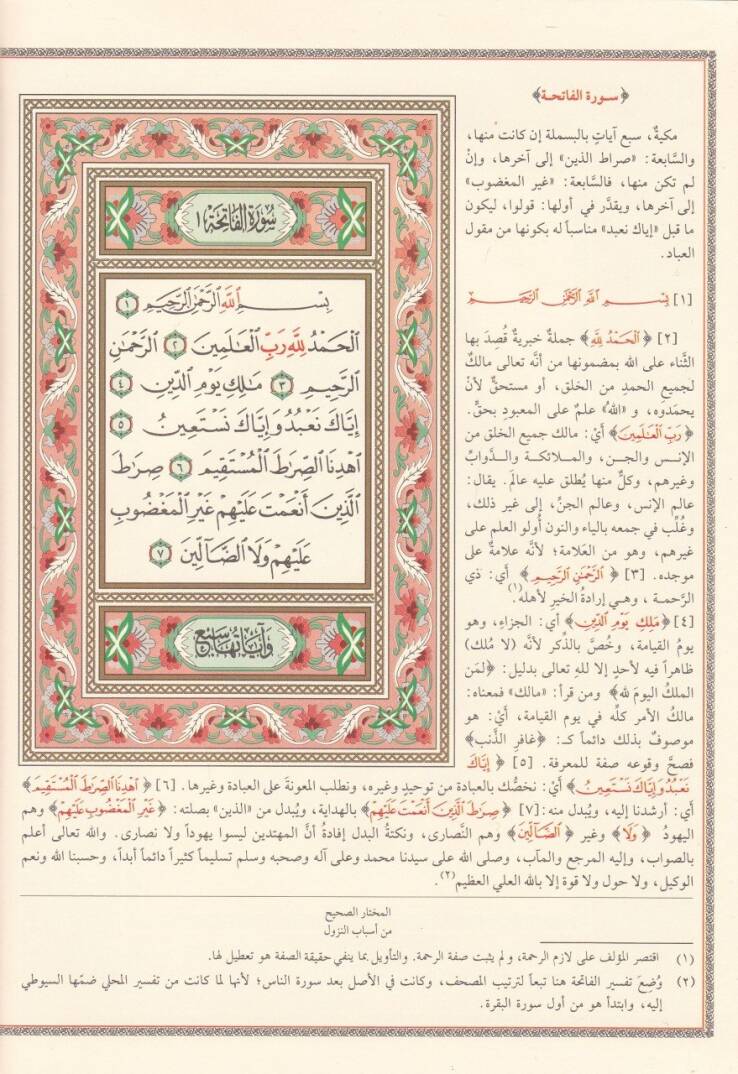 ﴿سورة الفاتحة﴾
مكيةٌ، سبع آياتٍ بالبسملة إن كانت منها،
والسَّابعة: «صراط الذين» إلى آخرها، وإنْ
لم تكن منها، فالسَّابعة: «غير المغضوب»
إلى آخرها، ويقدَّر في أولها: قولوا، ليكون
ما قبل «إياك نعبد» مناسباً له بكونها من مقول
العباد.
[١] بِسْمِ اللَّهِ الرَّحْمَٰنِ الرَّحِيمِ
[٢] ﴿ الْحَمْدُ لِلَّهِ ﴾ جملةٌ خبريةٌ قُصِدَ بها
الثَّناء على الله بمضمونها من أنَّه تعالى مالكٌ
لجميع الحمدِ من الخلق، أو مستحقٌّ لأنْ
يحمدَوه، و «اللهُ» علمٌ على المعبودِ بحقٍّ.
﴿ رَبِّ الْعَالَمِينَ ﴾ أيْ: مالك جميع الخلق من
الإنس والجن، والملائكة والدوابِّ
وغيرهم، وكلٌّ منها يُطلق عليه عالم. يقال:
عالم الإنس، وعالم الجنِّ، إلى غير ذلك،
وغُلِّب في جمعه بالياء والنون أُولو العلم على
غيرهم، وهو من العَلامة؛ لأنَّه علامةٌ على
موجده. [٣] ﴿ الرَّحْمَٰنِ الرَّحِيمِ ﴾ أي: ذي
الرَّحمة ، وهي إرادةُ الخيرِ لأهله(١).
[٤] ﴿مَالِكِ يَوْمِ الدِّينِ ﴾ أي: الجزاءِ، وهو
يومُ القيامة، وخُصَّ بالذِّكر لأنَّه (لا مُلك)
ظاهراً فيه لأحدٍ إلا للهِ تعالى بدليل: ﴿لمَن
الملكُ اليومَ لله﴾ ومن قرأ: «مالك» فمعناه:
مالكُ الأمر كلِّه في يوم القيامة، أيْ: هو
موصوفٌ بذلك دائماً كـ: ﴿غافرِ الذَّنب﴾
فصحَّ وقوعه صفة للمعرفة. [٥] ﴿ إِيَّاكَ
نَعْبُدُ وَإِيَّاكَ نَسْتَعِينُ ﴾ أيْ: نخصُّك بالعبادة من توحيدٍ وغيره، ونطلب المعونةَ على العبادة وغيرها. [٦] ﴿ اهْدِنَا الصِّرَاطَ الْمُسْتَقِيمَ ﴾
أي: أرشدنا إليه، ويُبدل منه: [٧] ﴿ صِرَاطَ الَّذِينَ أَنْعَمْتَ عَلَيْهِمْ ﴾ بالهداية، ويُبدل من «الذين» بصلته: ﴿ غَيْرِ الْمَغْضُوبِ عَلَيْهِمْ ﴾ وهم
اليهودُ ﴿ وَلَا ﴾ وغير ﴿ الضَّالِّينَ ﴾ وهم النَّصارى، ونكتةُ البدل إفادةُ أنَّ المهتدين ليسوا يهوداً ولا نصارى. والله تعالى أعلم
بالصواب، وإليه المرجع والمآب، وصلى الله على سيدنا محمد وعلى آله وصحبه وسلم تسليماً كثيراً دائماً أبداً، وحسبنا الله ونعم
الوكيل، ولا حول ولا قوة إلا بالله العلي العظيم(٢).
سُورَةُ الْفَاتِحَةِ ١
بِسْمِ اللَّهِ الرَّحْمَٰنِ الرَّحِيمِ ١
الْحَمْدُ لِلَّهِ رَبِّ الْعَالَمِينَ ٢ الرَّحْمَٰنِ
الرَّحِيمِ ٣ مَالِكِ يَوْمِ الدِّينِ ٤
إِيَّاكَ نَعْبُدُ وَإِيَّاكَ نَسْتَعِينُ ٥
اهْدِنَا الصِّرَاطَ الْمُسْتَقِيمَ ٦ صِرَاطَ
الَّذِينَ أَنْعَمْتَ عَلَيْهِمْ غَيْرِ الْمَغْضُوبِ
عَلَيْهِمْ وَلَا الضَّالِّينَ ٧
وَآيَاتُهَا سَبْعٌ
المختار الصحيح
من أسباب النزول
(١) اقتصر المؤلف على لازم الرحمة، ولم يثبت صفة الرحمة. والتأويل بما ينفي حقيقة الصفة هو تعطيل لها.
(٢) وُضِعَ تفسير الفاتحة هنا تبعاً لترتيب المصحف، وكانت في الأصل بعد سورة الناس؛ لأنها لما كانت من تفسير المحلي ضمّها السيوطي
إليه، وابتدأ هو من أول سورة البقرة.